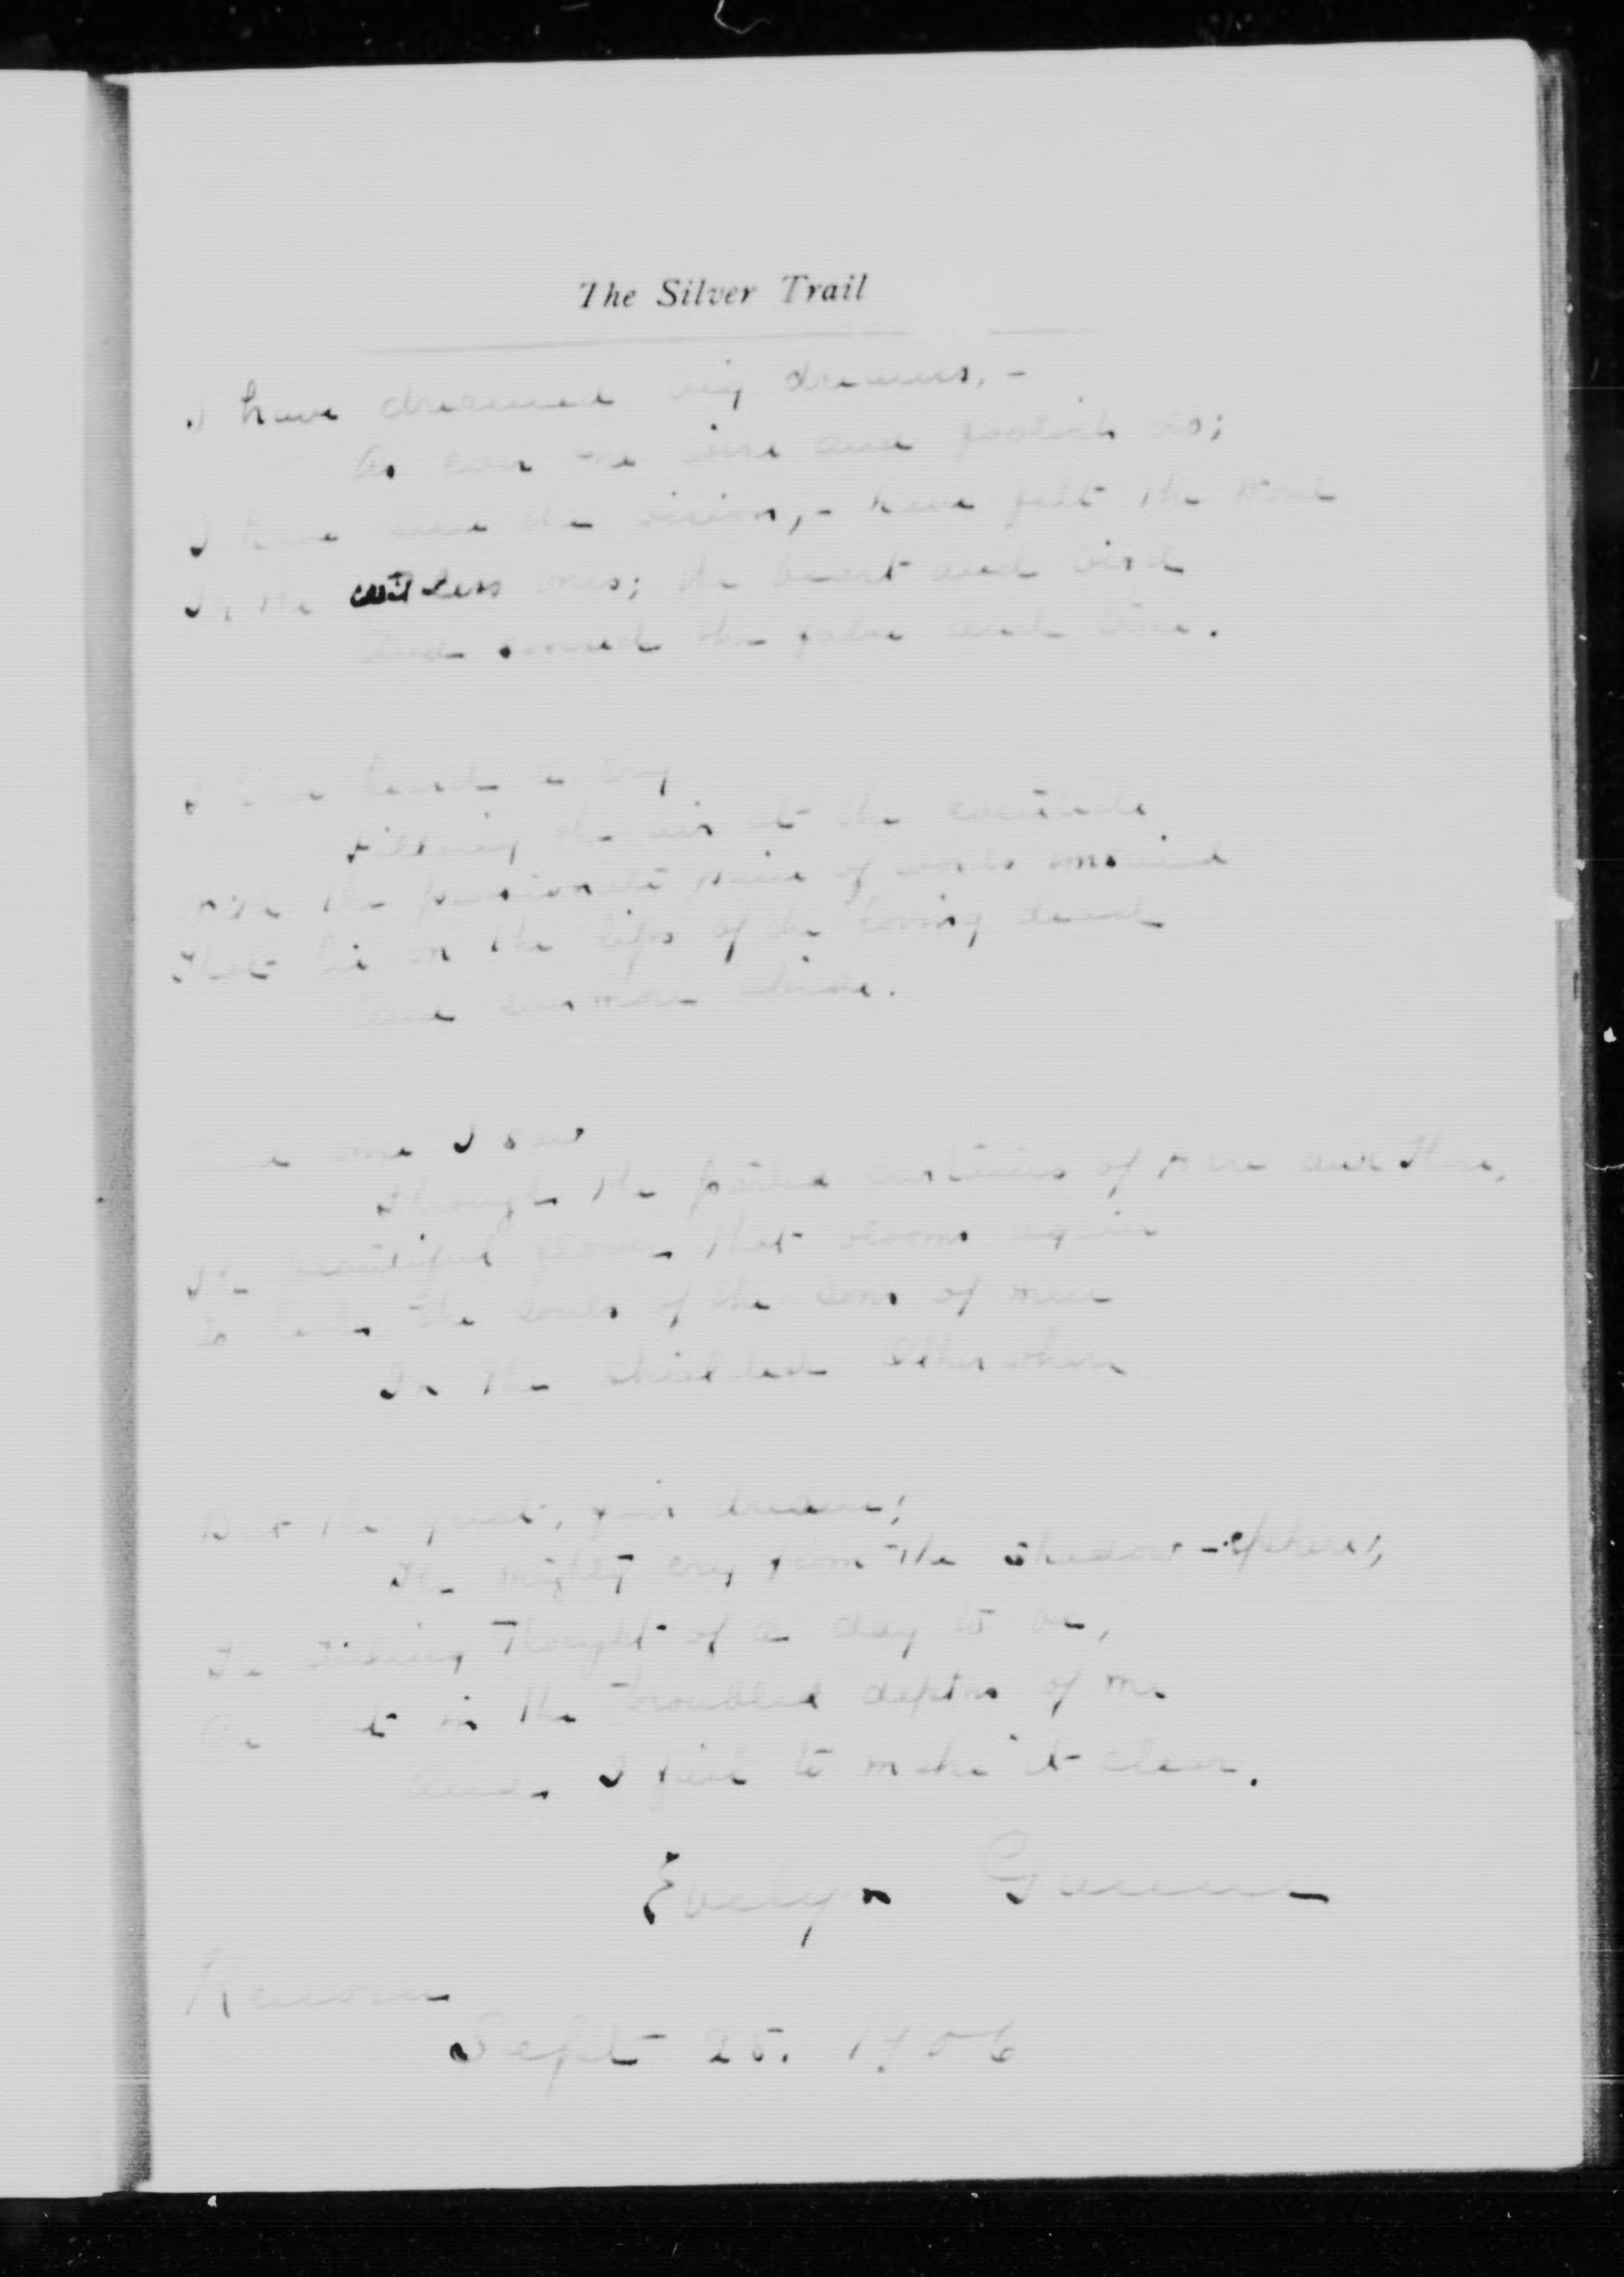 The Silver Trail
I have dreamed big dreams, -
As even the wise and foolish do;
I have seen the vision, - have felt the Word
In the witless ones; the beast and bird
And the false and true.
I have heard a cry
Filling the air at the eventide
With the passionate pain of words unsaid
That lie on the lips of the loving dead
And evermore abide.
once I saw
Through the parted curtains of Here and There,
The beautiful flower that blooms again
To the souls of the sons of men
In the Otherwhere
But the great, fair dream;
The mighty cry from the shadow-sphere;
The thought of a day to be,
Are lost in the troubled depths of me
And, I fail to make it clear.
Evelyn
Sept 25. 1906